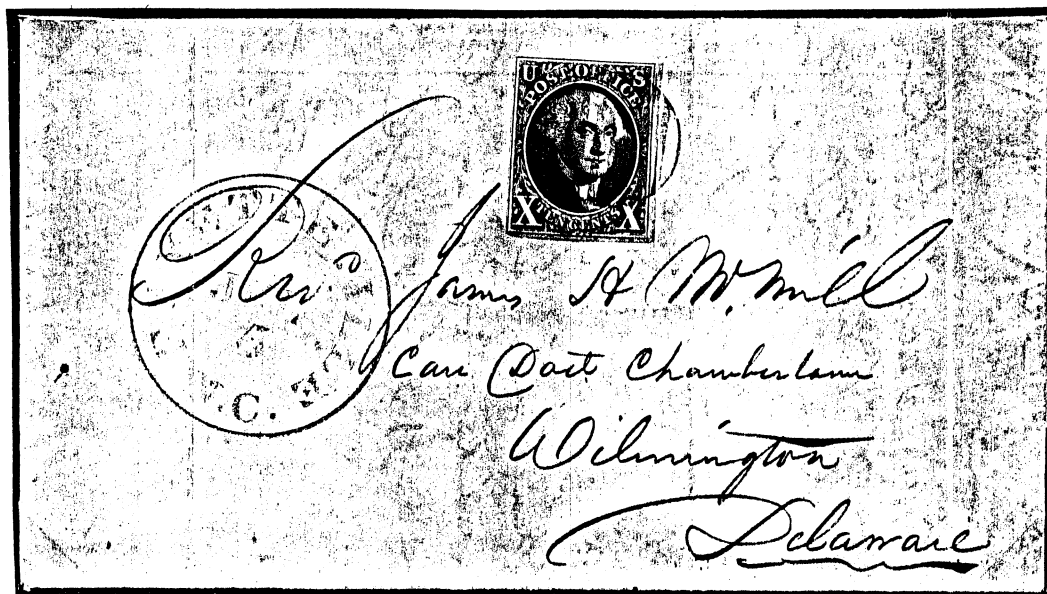 U S
POST OFFICE
X TEN CENTS X
Rev. James H McNeill
Care Doct Chamberlain
Wilmington
Delaware
C.